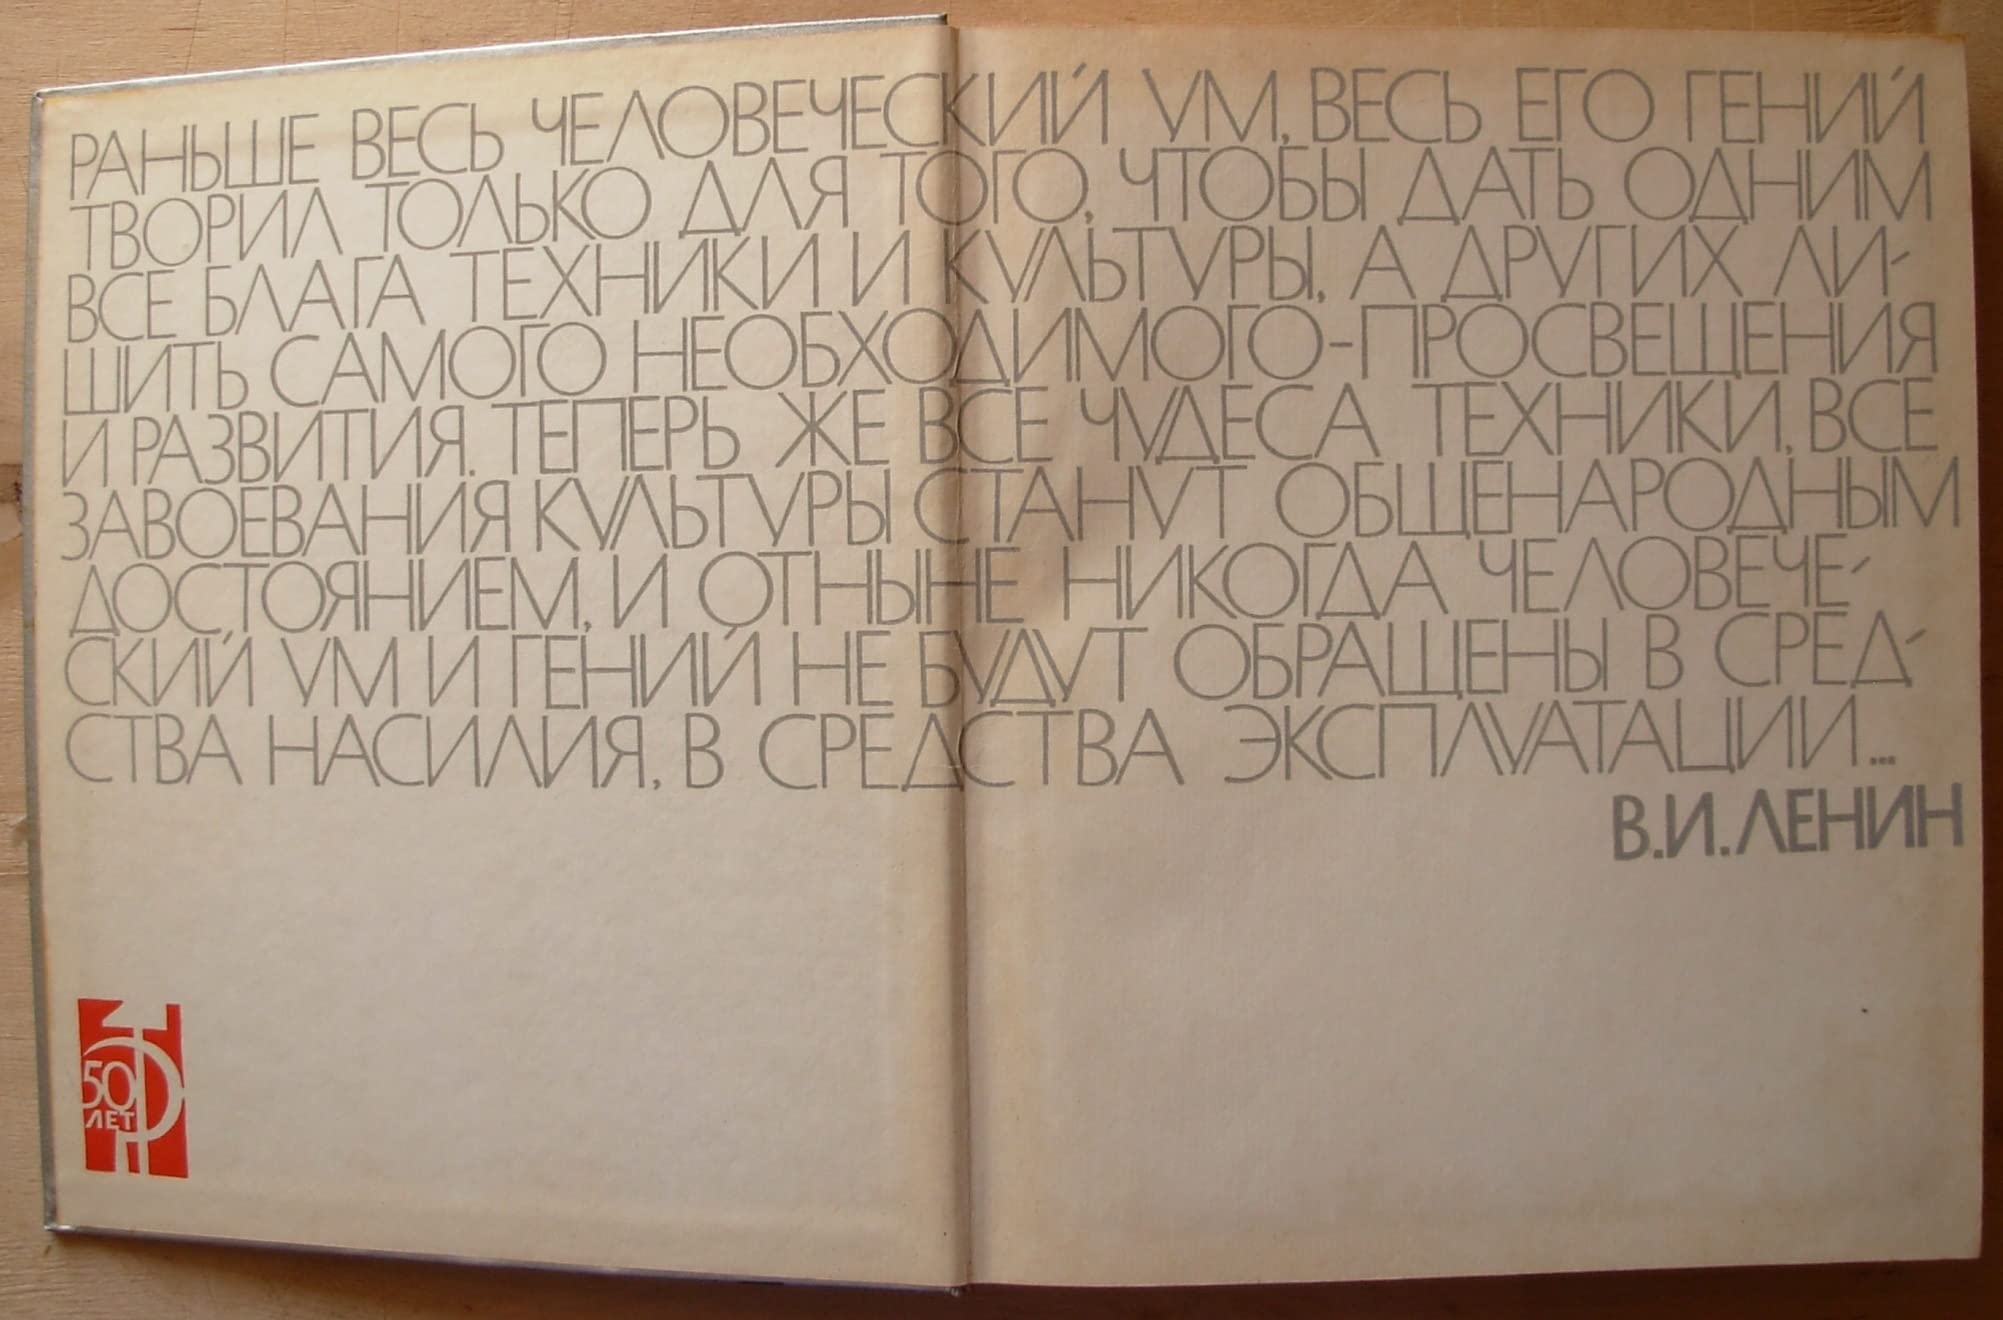 РАНЬШЕ ВЕСЬ ЧЕЛОВЕЧЕСКИЙ УМ, ВЕСЬ ЕГО ГЕНИЙ
ТВОРИЛ ТОЛЬКО ДЛЯ ТОГО, ЧТОБЫ ДАТЬ ОДНИМ
ВСЕ БЛАГА ТЕХНИКИ И КУЛЬТУРЫ, А ДРУГИХ ЛИ-
ШИТЬ САМОГО НЕОБХОДИМОГО-ПРОСВЕЩЕНИЯ
И РАЗВИТИЯ. ТЕПЕРЬ ЖЕ ВСЕ ЧУДЕСА ТЕХНИКИ, ВСЕ
ЗАВОЕВАНИЯ КУЛЬТУРЫ СТАНУТ ОБЩЕНАРОДНЫМ
ДОСТОЯНИЕМ, И ОТНЫНЕ НИКОГДА ЧЕЛОВЕЧЕ-
СКИЙ УМ И ГЕНИЙ НЕ БУДУТ ОБРАЩЕНЫ В СРЕД-
СТВА НАСИЛИЯ, В СРЕДСТВА ЭКСПЛУАТАЦИИ...
В.И.ЛЕНИН
50
ЛЕТ